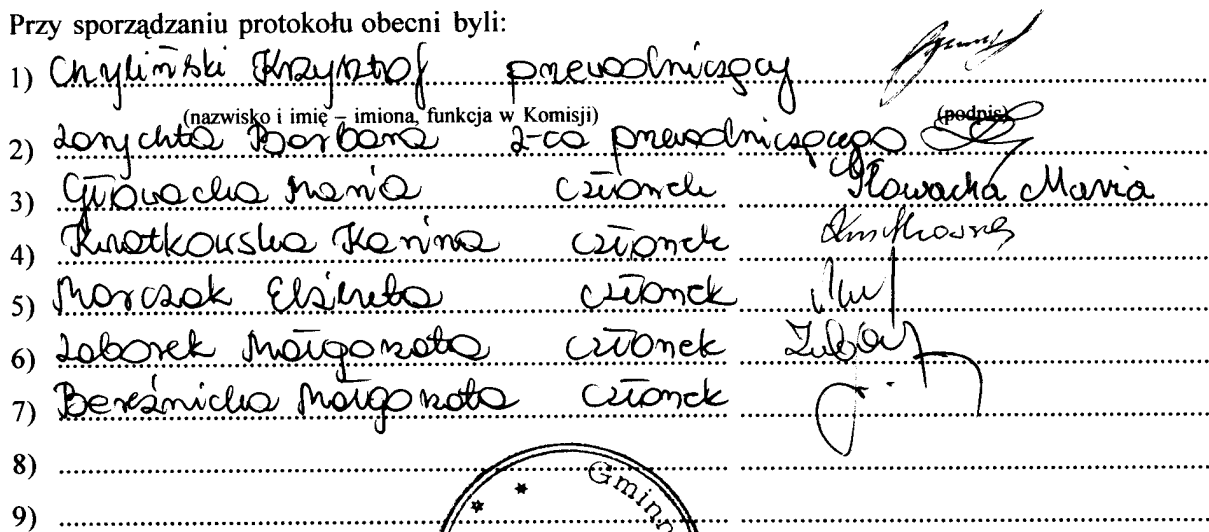 Przy sporządzaniu protokołu obecni byli:
1) Chyliński Krzysztof przewodniczący
(nazwisko i imię – imiona, funkcja w Komisji) (podpis)
2) Barbara z-ca przewodniczącego
3) Głowacka Maria członek Głowacka Maria
4) Kwiatkowska Janina członek
5) Marczak Elżbieta członek
6) Małgorzata członek
7) Bereźnicka Małgorzata członek
8)
9)